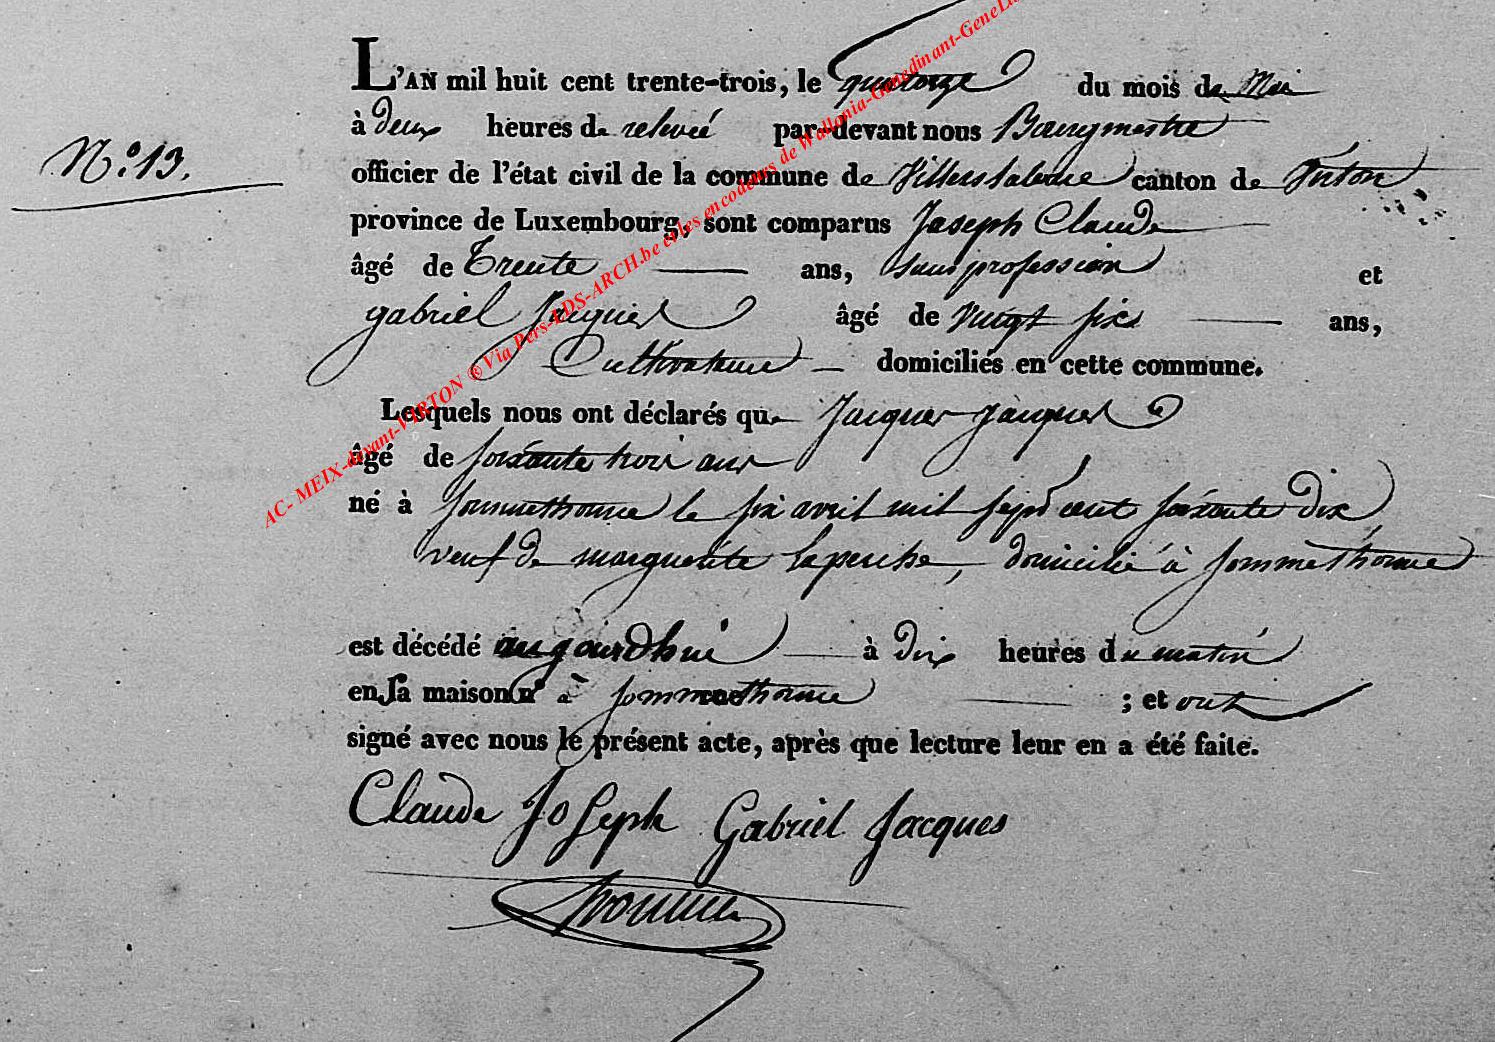 L'AN mil huit cent trente-trois, le quatorze du mois de Mai
à deux heures de relevée par-devant nous Bourgmestre
N.º 13.
officier de l'état civil de la commune de Villers laloue canton de Virton
province de Luxembourg, sont comparus Joseph Claude
âgé de trente ans, sans profession et
gabriel Jacques âgé de vingt six ans,
Cultivateur domiciliés en cette commune.
Lesquels nous ont déclarés que Jacques Jacques
âgé de soixante trois ans
né à Sommethonne le six avril mil sept cent soixante dix
veuf de marguerite laperche, domicilié à Sommethonne
est décédé aujourdhui à dix heures du matin
en sa maison nº à Sommethonne ; et ont
signé avec nous le présent acte, après que lecture leur en a été faite.
Claude Joseph Gabriel Jacques
AC- MEIX-devant-VIRTON ® Via Pers-LDS-ARCH.be et les encodeurs de Wallonia-Genedinant-GeneLux